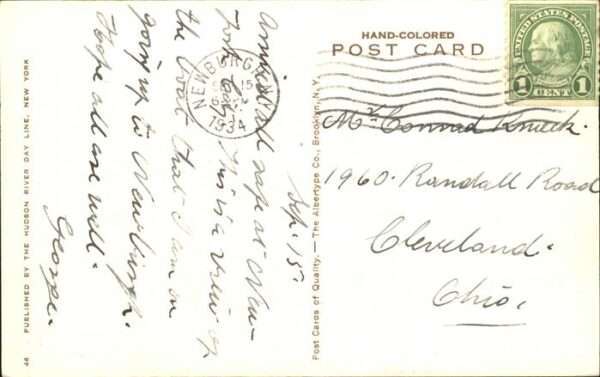 HAND-COLORED
POST CARD
UNITED STATES POSTAGE
1 CENT 1
NEWBURGH
15
1934
Sep. 15.
Arrived all safe at New-
York. This is a view of
the boat that I am on
going up to Newburgh.
Hope all are well.
George.
Mr. Conrad
1960. Randall Road
Cleveland.
Ohio.
Post Cards of Quality. — The Albertype Co., Brooklyn, N. Y.
46 PUBLISHED BY THE HUDSON RIVER DAY LINE, NEW YORK